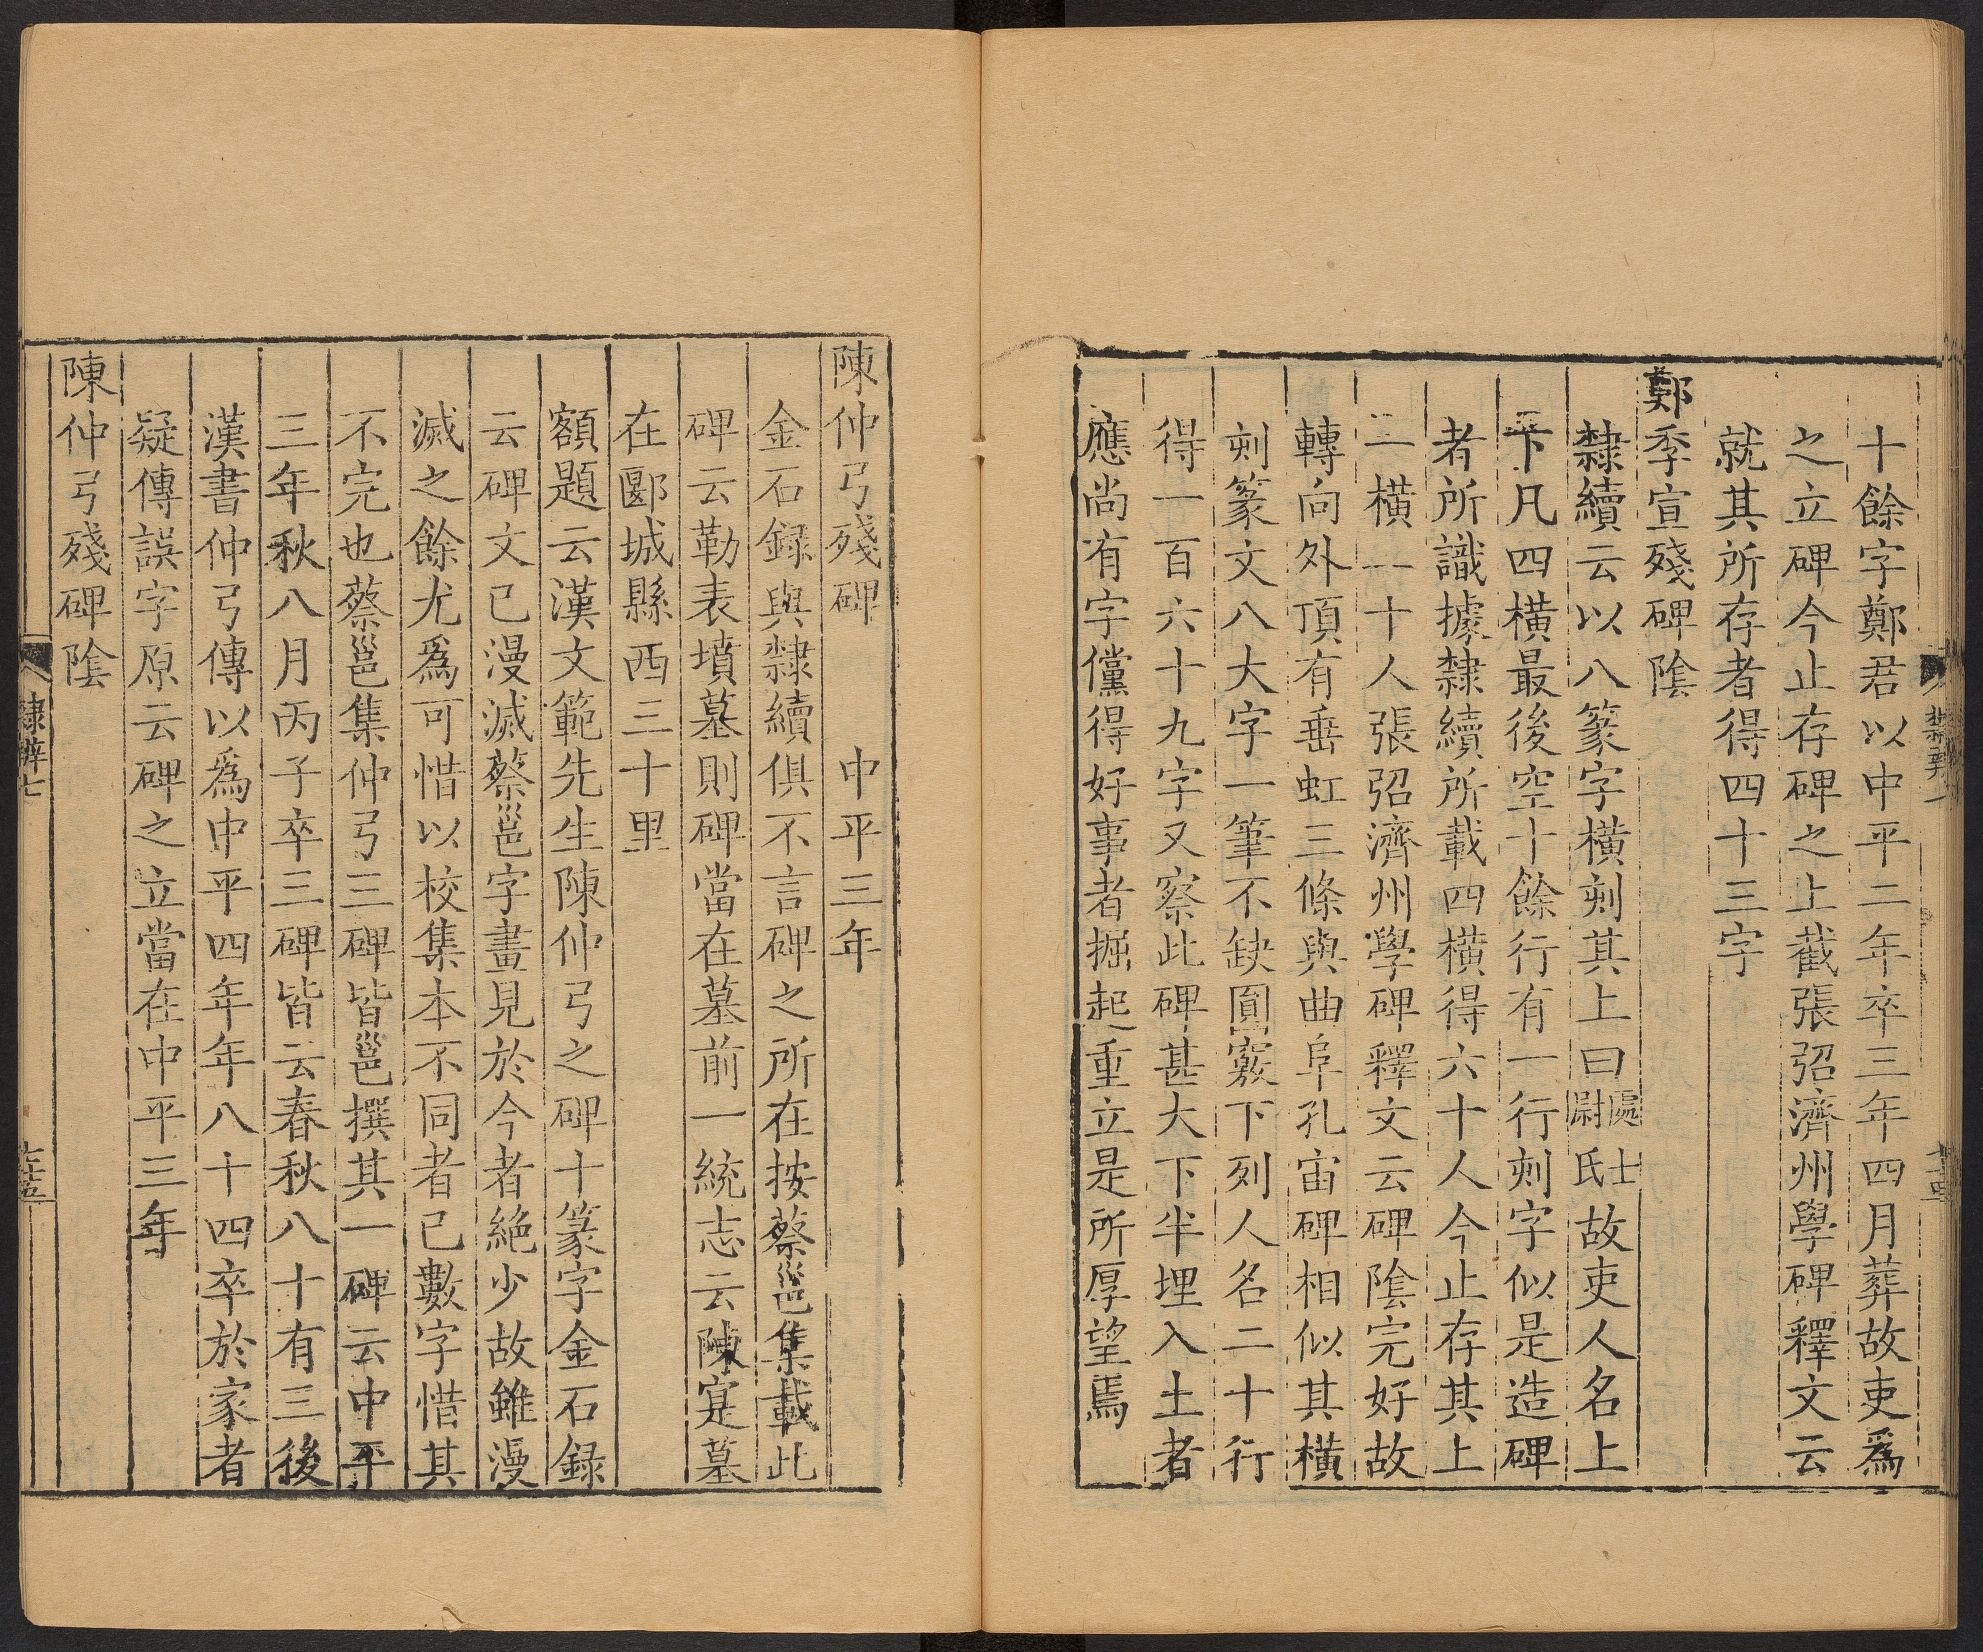 十餘字鄭君以中平二年卒三年四月葬故吏爲
之立碑今止存碑之上截張弨濟州學碑釋文云
就其所存者得四十三字
鄭季宣殘碑陰
隸續云以八篆字橫刻其上曰處士尉氏故吏人名上
下凡四橫最後空十餘行有一行刻字似是造碑
者所識據隸續所載四橫得六十人今止存其上
二橫一十人張弨濟州學碑釋文云碑陰完好故
轉向外頂有垂虹三條與曲阜孔宙碑相似其橫
刻篆文八大字一筆不缺圓竅下列人名二十行
得一百六十九字又察此碑甚大下半埋入土者
應尚有字儻得好事者掘起重立是所厚望焉
陳仲弓殘碑 中平三年
金石録與隸續俱不言碑之所在按蔡邕集載此
碑云勒表墳墓則碑當在墓前一統志云陳寔墓
在郾城縣西三十里
額題云漢文範先生陳仲弓之碑十篆字金石録
云碑文已漫滅蔡邕字畫見於今者絶少故雖漫
滅之餘尤爲可惜以校集本不同者已數字惜其
不完也蔡邕集仲弓三碑皆邕撰其一碑云中平
三年秋八月丙子卒三碑皆云春秋八十有三後
漢書仲弓傳以爲中平四年年八十四卒於家者
疑傳誤字原云碑之立當在中平三年
陳仲弓殘碑陰
隸辨七